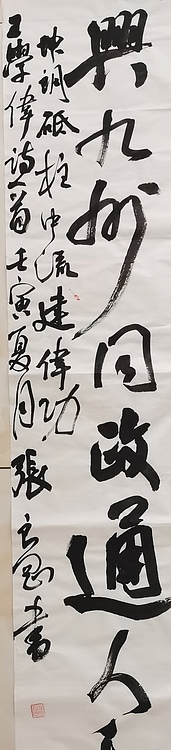 興九州同政通人
坤調砥柱中流建偉功
王學偉詩一首壬寅夏月張書